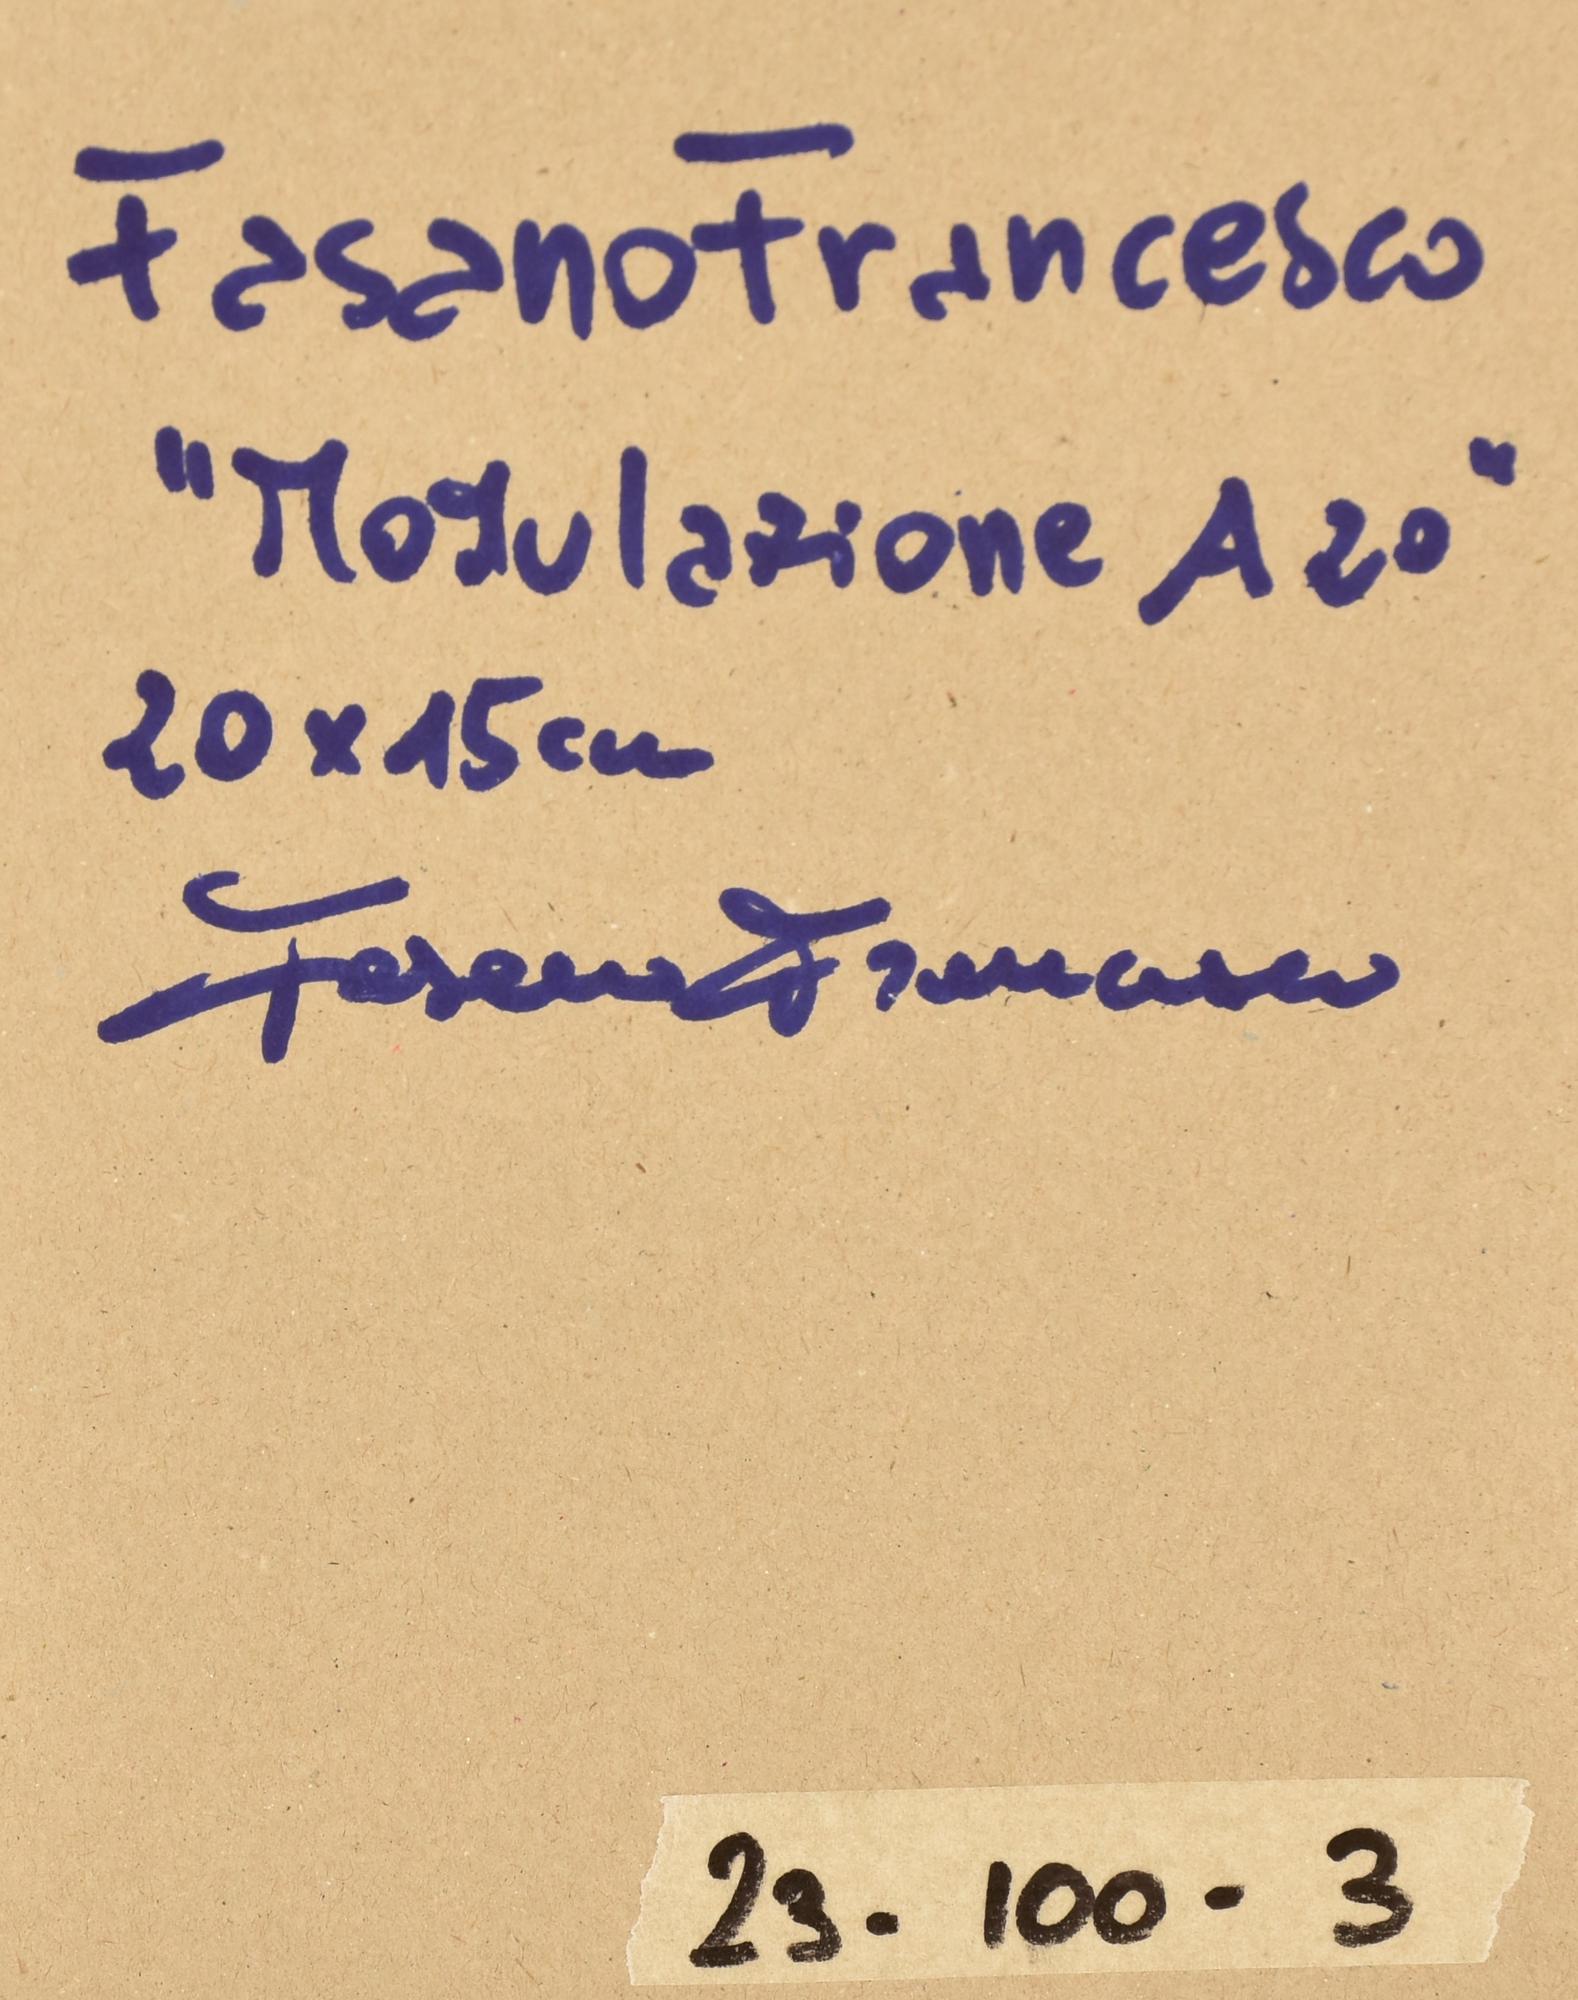 Fasano Francesco
"Modulazione A20"
20x15cm
Fasano Francesco
23. 100 - 3